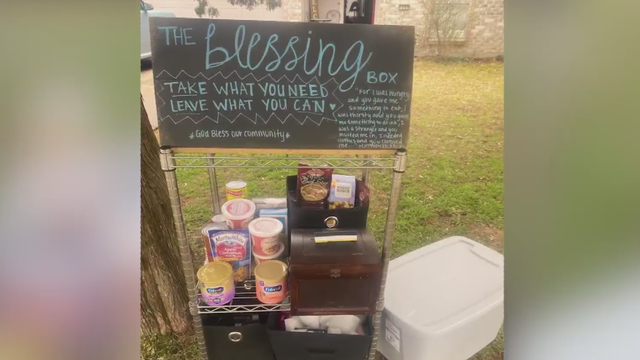 THE blessing BOX
TAKE WHAT YOU NEED
LEAVE WHAT YOU CAN
God Bless our community
"For I was hungry
and you gave me
something to eat, I
was thirsty and you gave
me something to drink, I
was a stranger and you
invited me in, I needed
clothes and you clothed
me